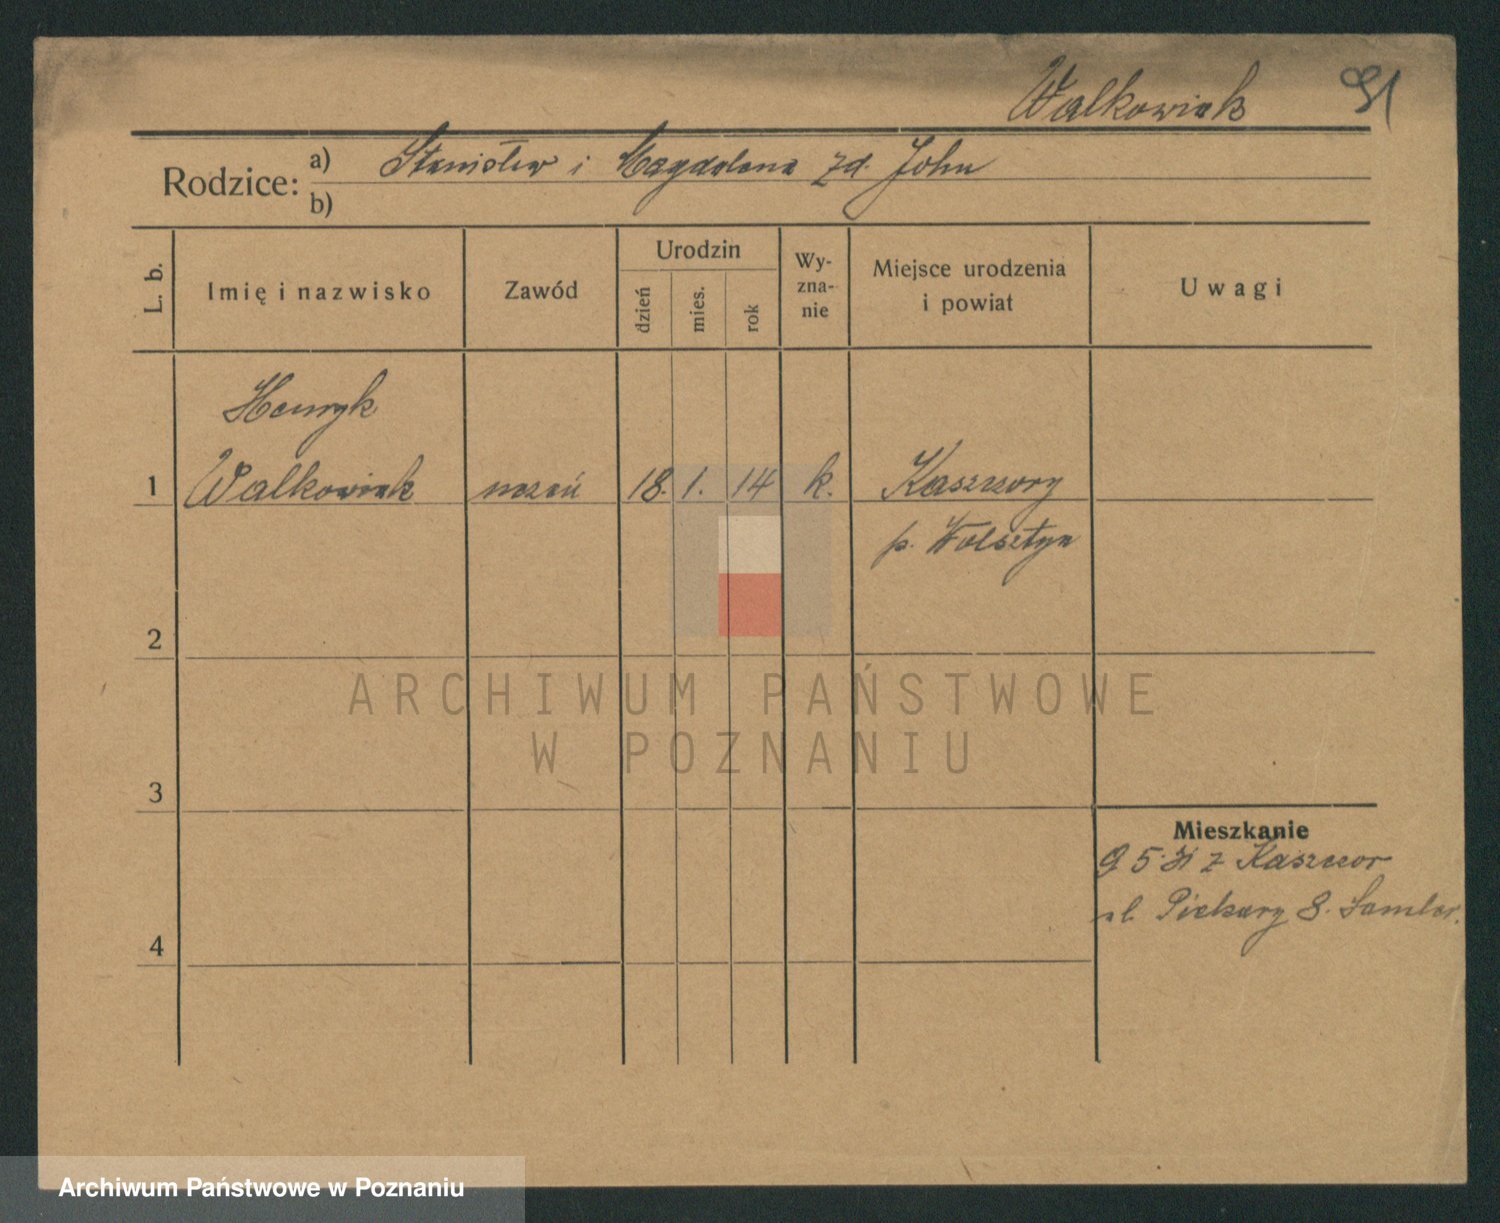 Walkowiak 91
Rodzice: a) Stanisław i Magdalena zd. John
b)
L. b. Imię i nazwisko Zawód Urodzin dzień mies. rok Wy-zna-nie Miejsce urodzenia i powiat Uwagi
Henryk
1 Walkowiak uczeń 18. 1. 14 k. Kaszczory
p. Wolsztyn
2
ARCHIWUM PAŃSTWOWE
W POZNANIU
3
Mieszkanie
9 5 31 z Kaszczor
ul. Piekary 8.
4
Archiwum Państwowe w Poznaniu